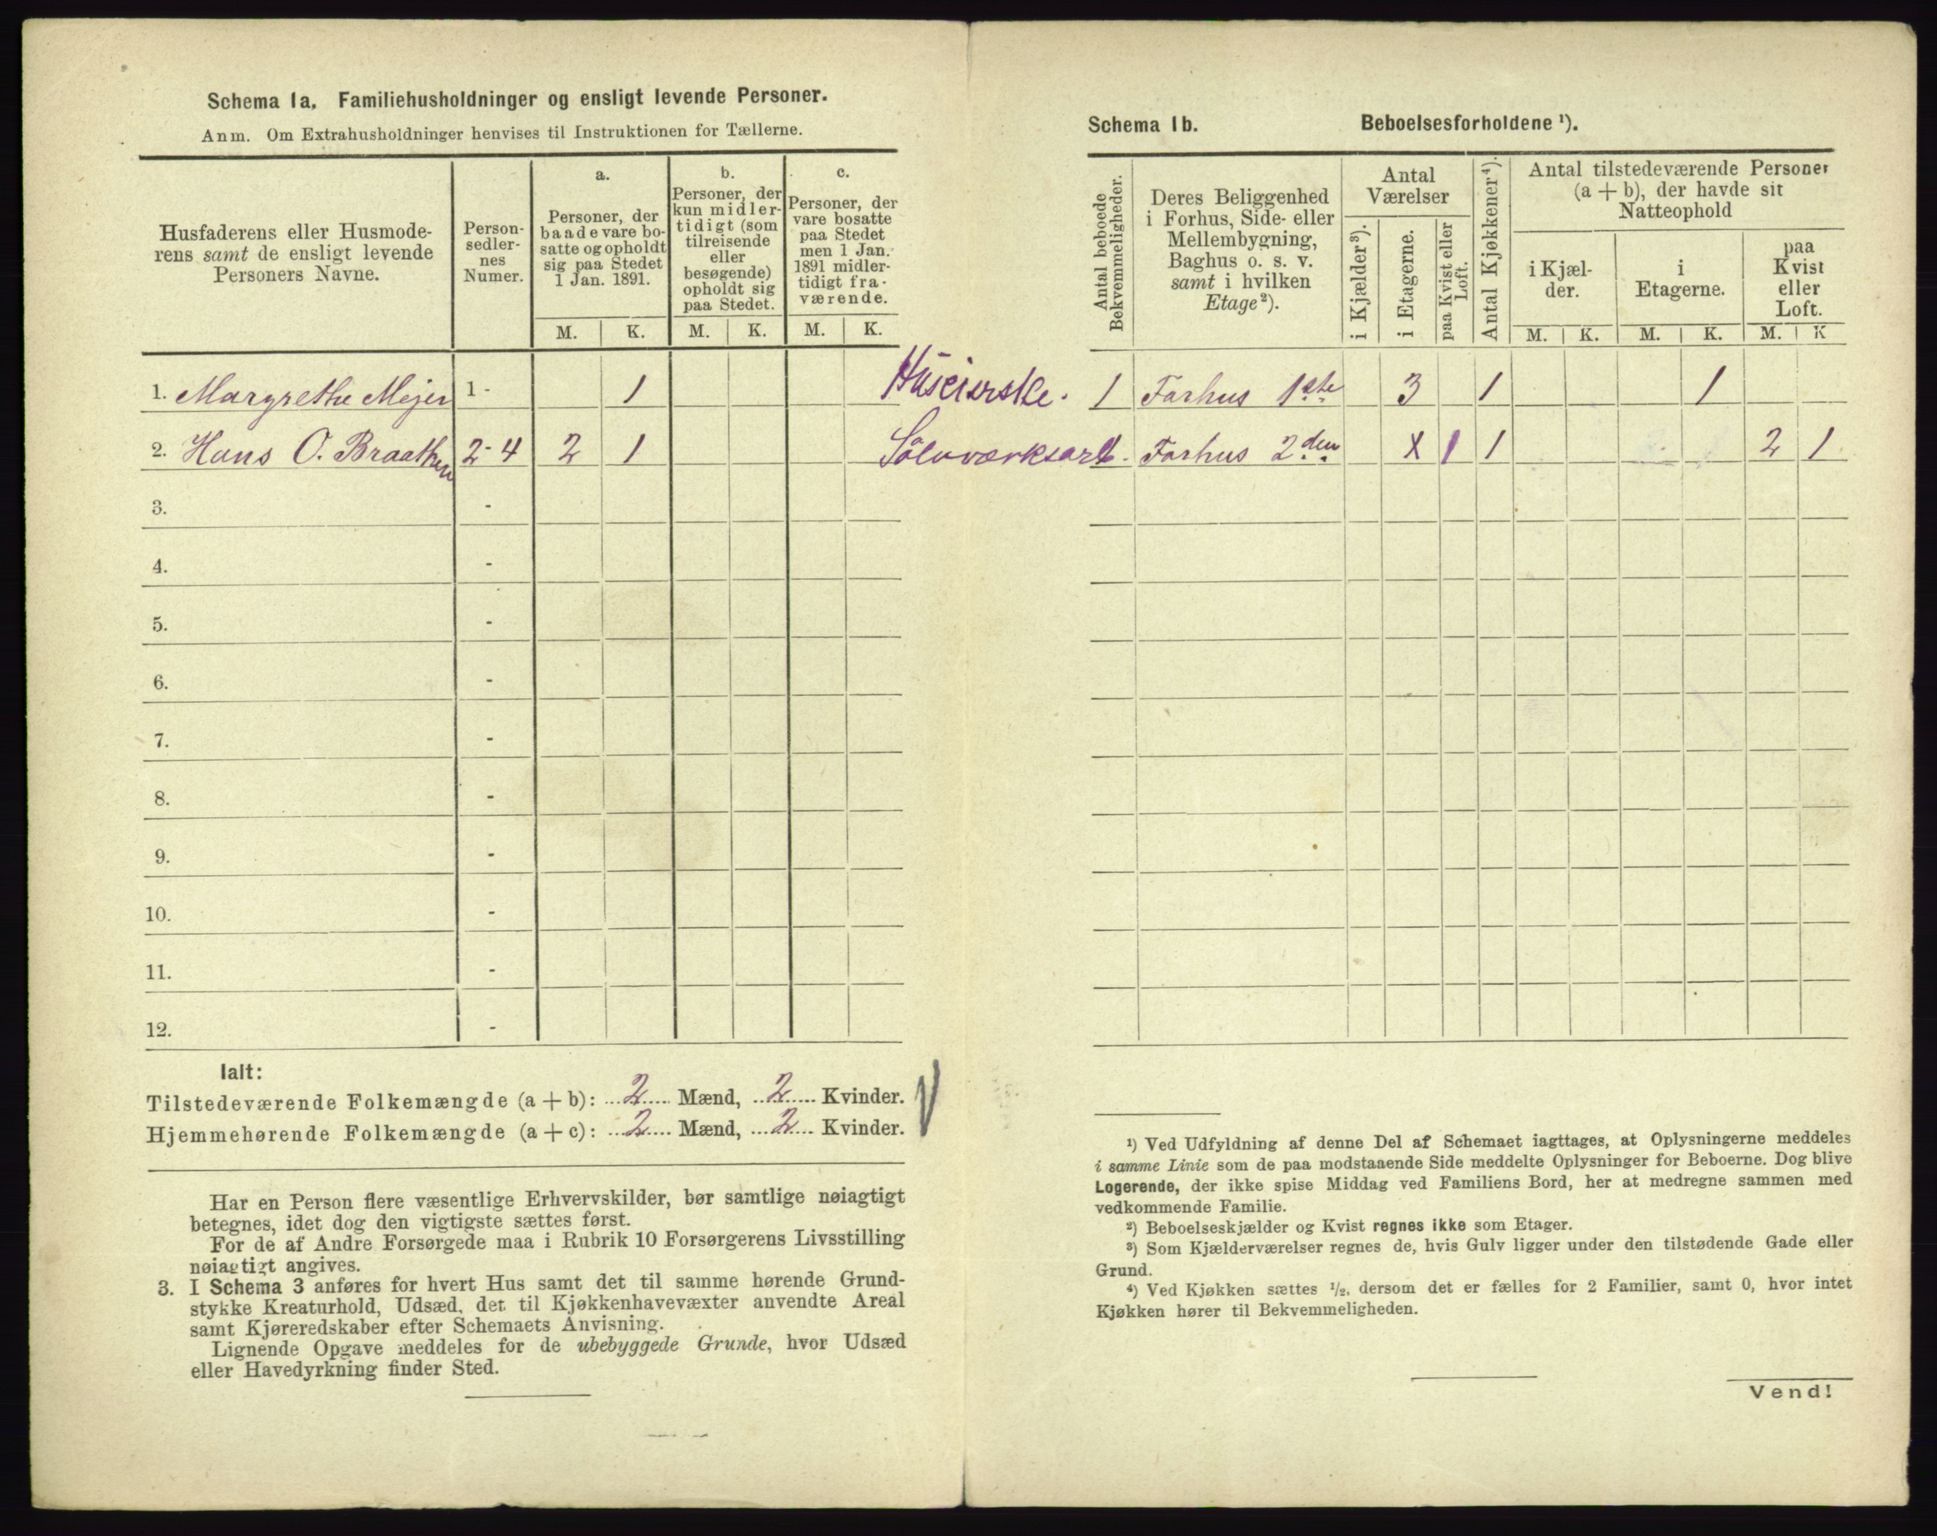 Schema 1a. Familiehusholdninger og ensligt levende Personer.
Anm. Om Extrahusholdninger henvises til Instruktionen for Tællerne.
Husfaderens eller Husmode-
rens samt de ensligt levende
Personers Navne.
Person-
sedler-
nes
Numer.
a.
Personer, der
baade vare bo-
satte og opholdt
sig paa Stedet
1 Jan. 1891.
b.
Personer, der
kun midler-
tidigt (som
tilreisende
eller
besøgende)
opholdt sig
paa Stedet.
c.
Personer, der
vare bosatte
paa Stedet
men 1 Jan.
1891 midler-
tidigt fra-
værende.
M. K. M. K. M. K.
1. Margrethe Mejer 1 - 1 Huseierske.
2. Hans O. Braathen 2-4 2 1
3. -
4. -
5. -
6. -
7. -
8. -
9. -
10. -
11. -
12. -
Ialt:
Tilstedeværende Folkemængde (a + b): 2 Mænd, 2 Kvinder.
Hjemmehørende Folkemængde (a + c): 2 Mænd, 2 Kvinder.
Har en Person flere væsentlige Erhvervskilder, bør samtlige nøiagtigt
betegnes, idet dog den vigtigste sættes først.
For de af Andre Forsørgede maa i Rubrik 10 Forsørgerens Livsstilling
nøiagtigt angives.
3. I Schema 3 anføres for hvert Hus samt det til samme hørende Grund-
stykke Kreaturhold, Udsæd, det til Kjøkkenhavevæxter anvendte Areal
samt Kjøreredskaber efter Schemaets Anvisning.
Lignende Opgave meddeles for de ubebyggede Grunde, hvor Udsæd
eller Havedyrkning finder Sted.
Schema 1b. Beboelsesforholdene ¹).
Antal beboede
Bekvemmeligheder.
Deres Beliggenhed
i Forhus, Side- eller
Mellembygning,
Baghus o. s. v.
samt i hvilken
Etage ²).
Antal
Værelser
i Kjælder ³).
i Etagerne.
paa Kvist eller
Loft.
Antal Kjøkkener ⁴).
Antal tilstedeværende Personer
(a + b), der havde sit
Natteophold
i Kjæl-
der.
i
Etagerne.
paa
Kvist
eller
Loft.
M. K. M. K. M. K
1 Forhus 1ste 3 1 1
Forhus 2den X 1 1 2 1
¹) Ved Udfyldning af denne Del af Schemaet iagttages, at Oplysningerne meddeles
i samme Linie som de paa modstaaende Side meddelte Oplysninger for Beboerne. Dog blive
Logerende, der ikke spise Middag ved Familiens Bord, her at medregne sammen med
vedkommende Familie.
²) Beboelseskjælder og Kvist regnes ikke som Etager.
³) Som Kjælderværelser regnes de, hvis Gulv ligger under den tilstødende Gade eller
Grund.
⁴) Ved Kjøkken sættes ½, dersom det er fælles for 2 Familier, samt 0, hvor intet
Kjøkken hører til Bekvemmeligheden.
Vend!